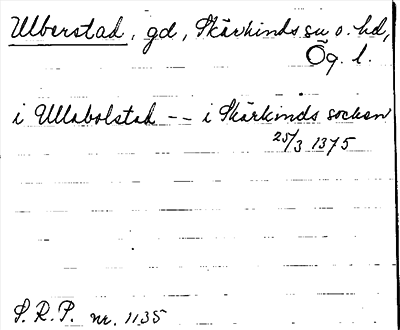 Ulberstad, gd, Skärkinds sn o. hd,
Ög. l.
i Ullabolstad -- i Skärkinds socken
25/3 1375
S. R. P. nr. 1135